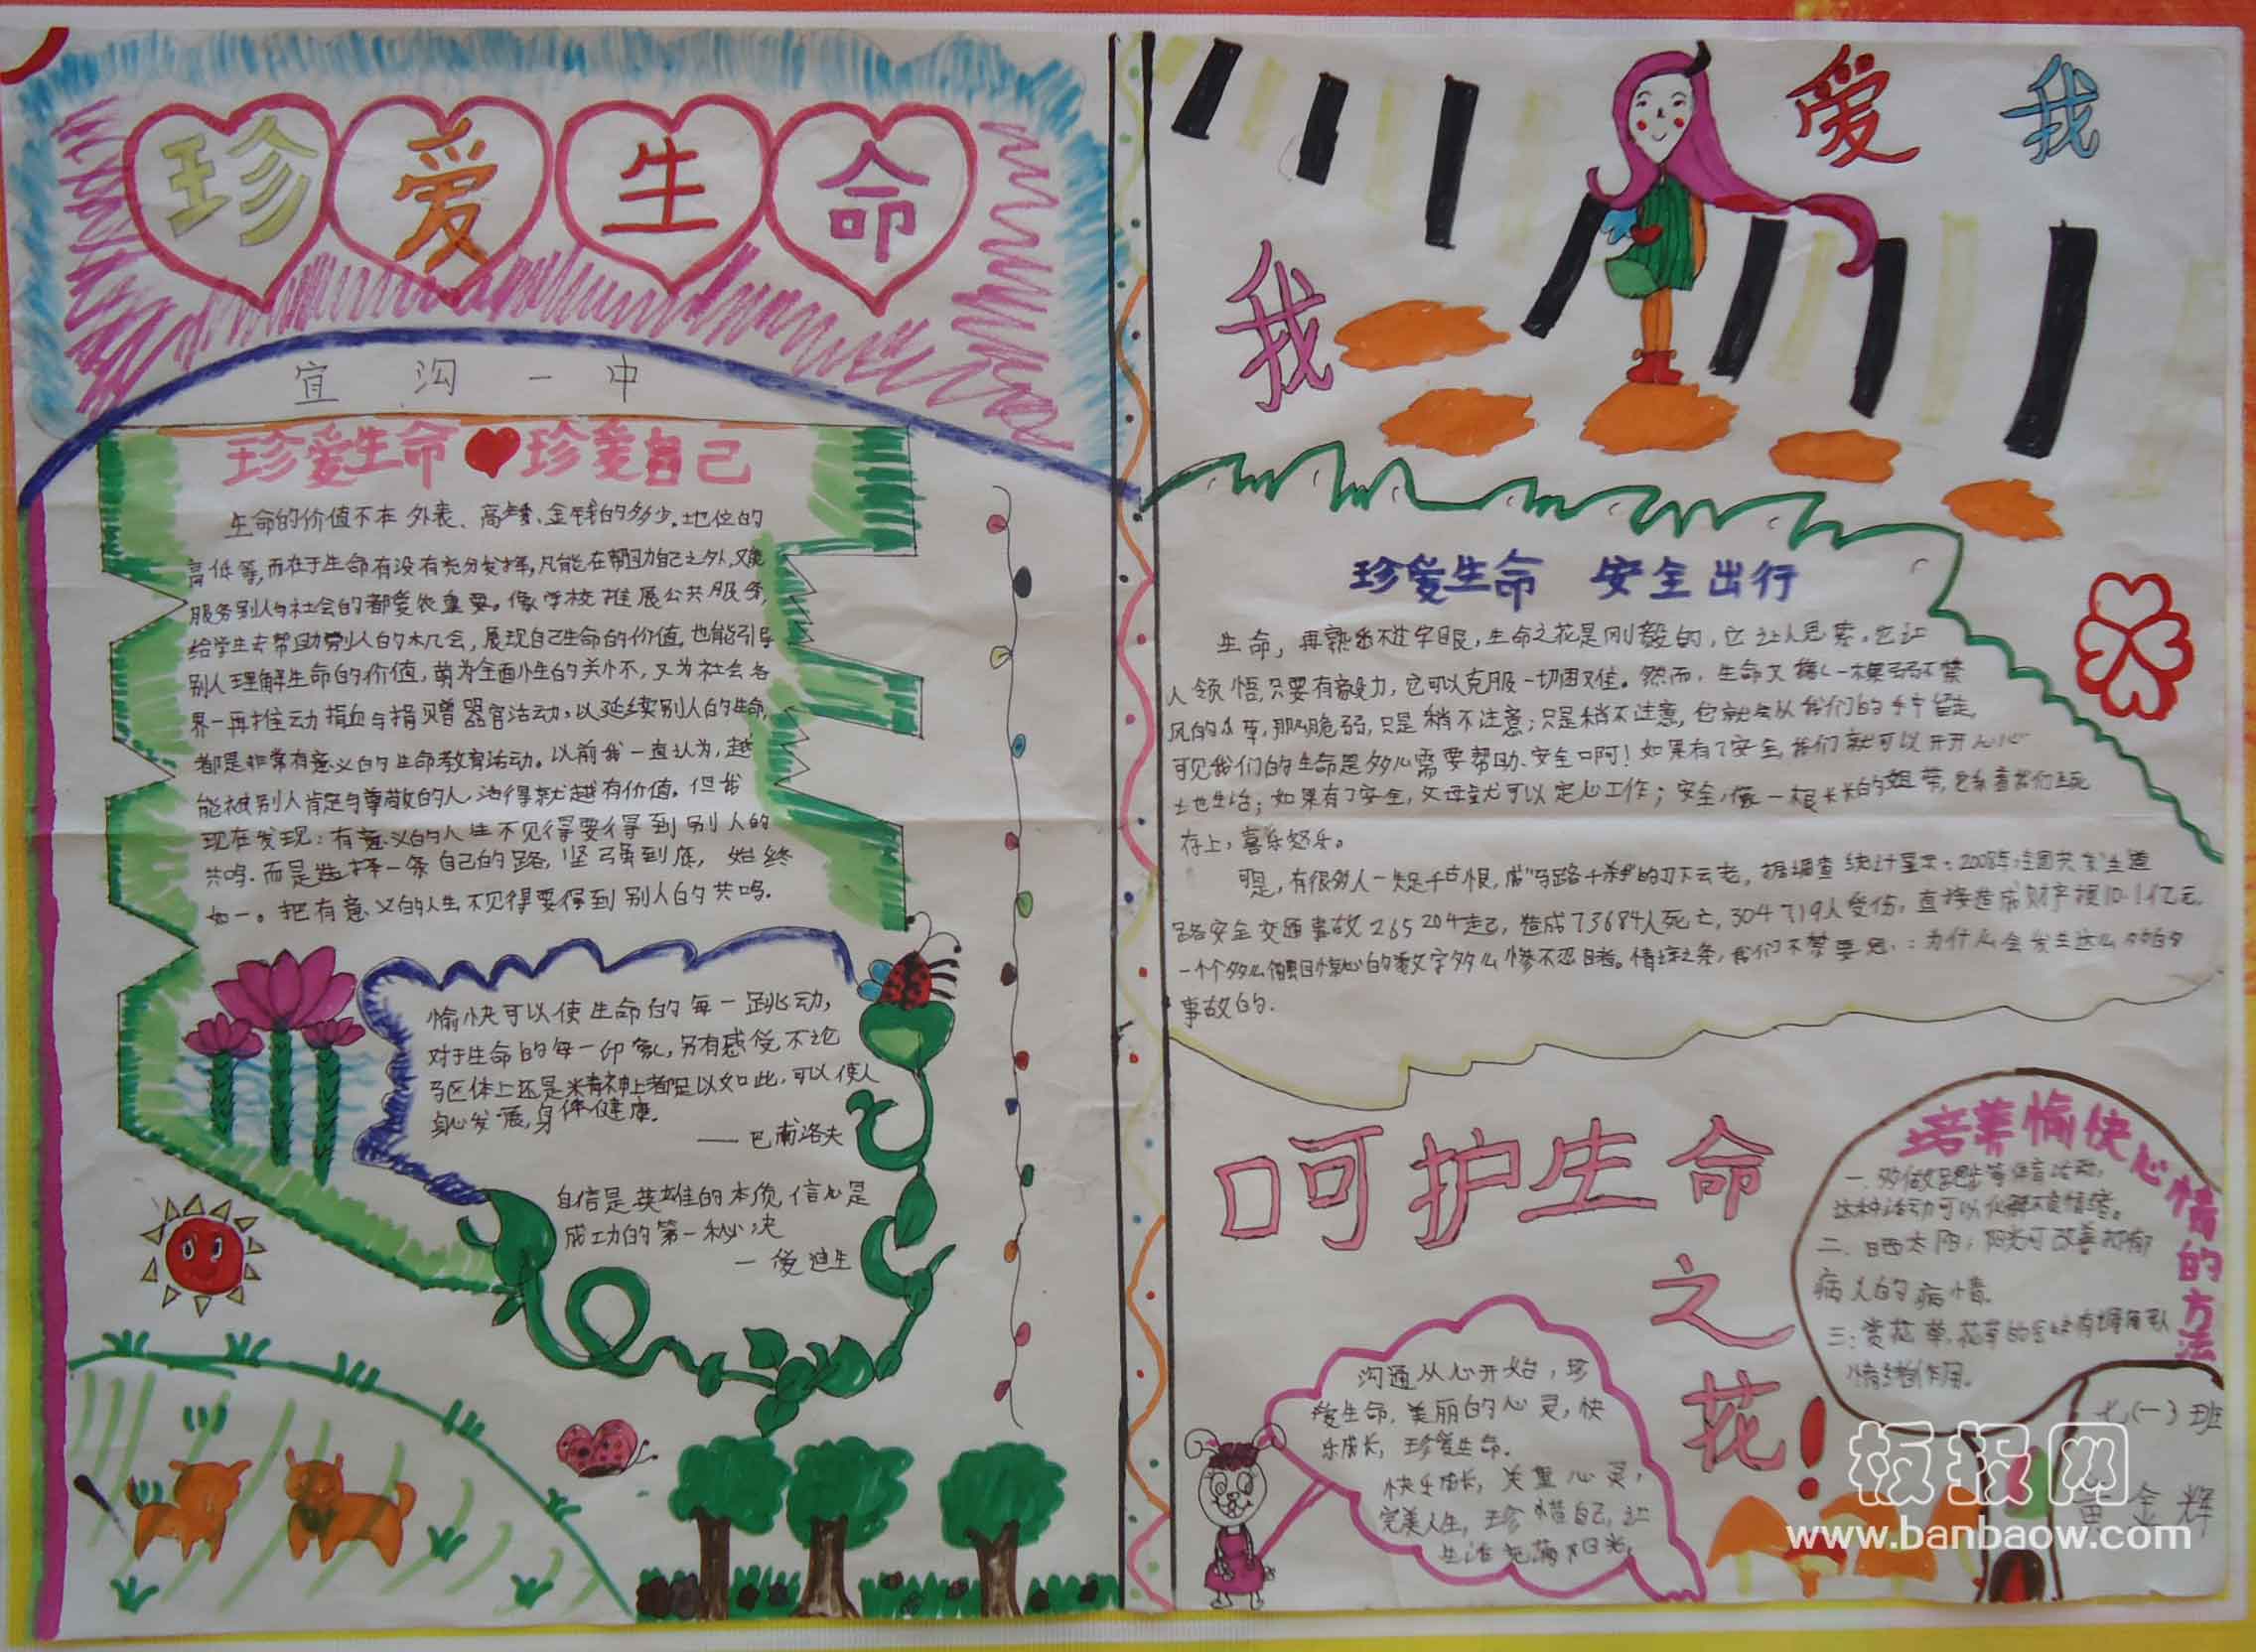 珍爱生命
宜沟一中
珍爱生命 珍爱自己
生命的价值不在外表、高矮、金钱的多少.地位的
高低等,而在于生命有没有充分发挥,凡能在帮助自己之外,又能
服务别人与社会的都爱很重要。像学校推展公共服务,
给学生去帮助别人的机会,展现自己生命的价值,也能引导
别人理解生命的价值,萌为全面性的关怀,又为社会各
界一再推动捐血与捐赠器官活动,以延续别人的生命,
都是非常有意义的生命教育活动。以前我一直认为,越
能被别人肯定与尊敬的人.活得就越有价值。但我
现在发现:有意义的人生不见得要得到别人的
共鸣.而是选择一条自己的路,坚强到底,始终
如一。把有意义的人生不见得要得到别人的共鸣.
愉快可以使生命的每一跳动,
对于生命的每一印象,另有感受,不论
身心发展,身体健康.
——巴甫洛夫
自信是英雄的本质,信心是
成功的第一秘决
—爱迪生
我
爱
我
珍爱生命 安全出行
生命,再熟悉不过字眼,生命之花是刚毅的,它让人思索,它让
人领悟,只要有毅力,它可以克服一切困难。然而,生命又像一棵弱不禁
风的小草,那么脆弱,只是稍不注意;只是稍不注意,它就会从我们的手中留走,
可见我们的生命是多么需要帮助、安全啊!如果有了安全,我们就可以开开心心
如果有了安全,父母就可以定心工作;安全,像一根长长的
存上,喜乐怒乐。
可是,有很多人一失足千古恨,
路安全交通事故265204起,造成73684人死亡,304719人受伤,直接造成财产损10.1亿元.
一个个多么触目惊心的数字多么惨不忍睹。我们不禁要思:为什么会发生这么多的
事故的.
呵护生命
之
花!
培养愉快心情的方法
一.多做跑步等体育活动,
这种活动可以化解不良情绪。
二、晒太阳,阳光可改善抑郁
病人的病情.
三:赏花草,
情绪作用。
沟通从心开始,珍
爱生命.美丽的心灵,快
乐成长,珍爱生命.
快乐成长,关重心灵,
完美人生,珍惜自己,让
生活充满阳光.
七(一)班
黄金辉
板报网
www.banbaow.com